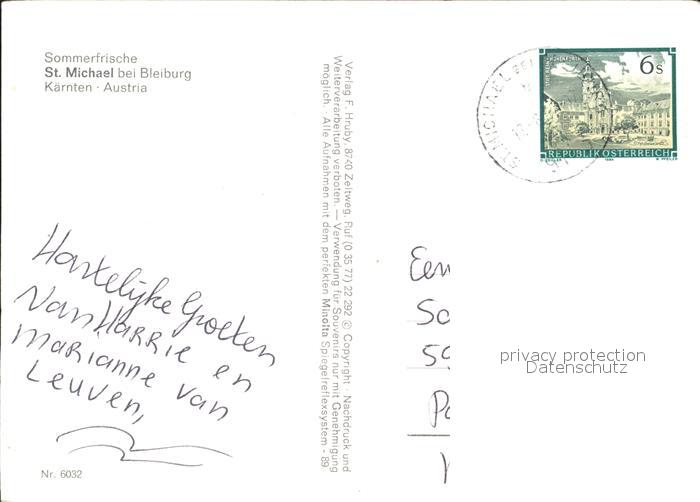 Sommerfrische
St. Michael bei Bleiburg
Kärnten · Austria
Hartelijke Groeten
Van HARRIE en
Marianne van
Leuven,
Nr. 6032
Verlag F. Hruby, 8740 Zeltweg, Ruf (0 35 77) 22 292 © Copyright · Nachdruck und
Weiterverarbeitung verboten. — Verwendung für Souvenirs nur mit Genehmigung
möglich. · Alle Aufnahmen mit dem perfekten Minolta Spiegelreflexsystem - 89
ST. MICHAEL BEI
6 s
REPUBLIK ÖSTERREICH
1984
W. PFEILER
Een
Sc
59
Pa
privacy protection
Datenschutz